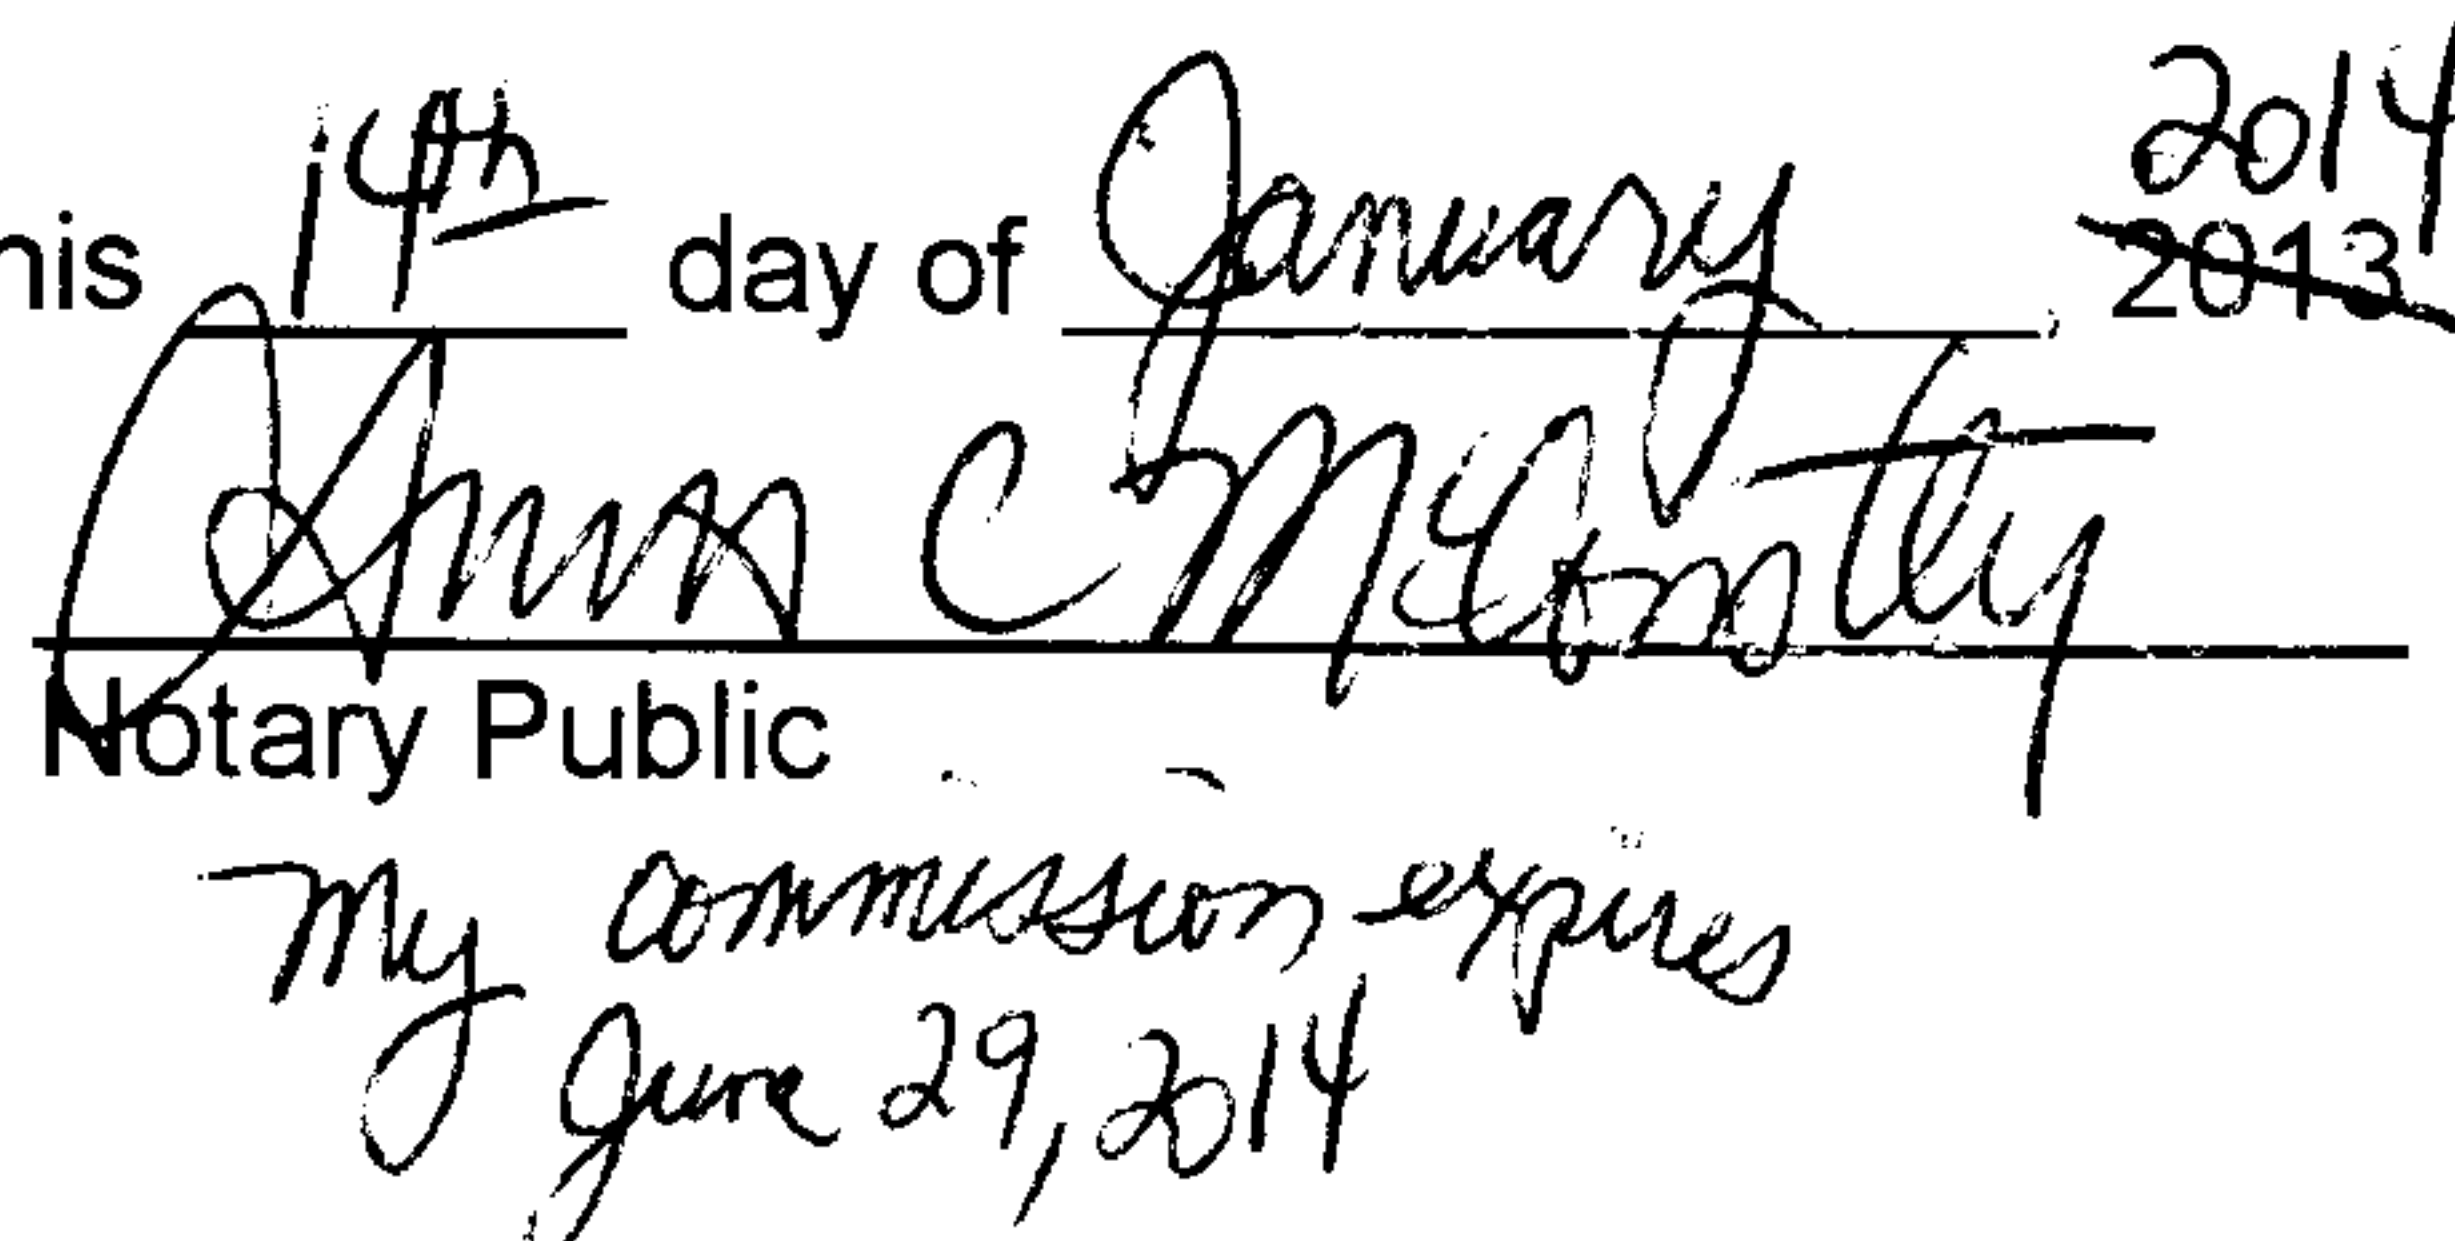 his 14th day of January, 2014 2013
C
Notary Public
My commission expires
June 29, 2014